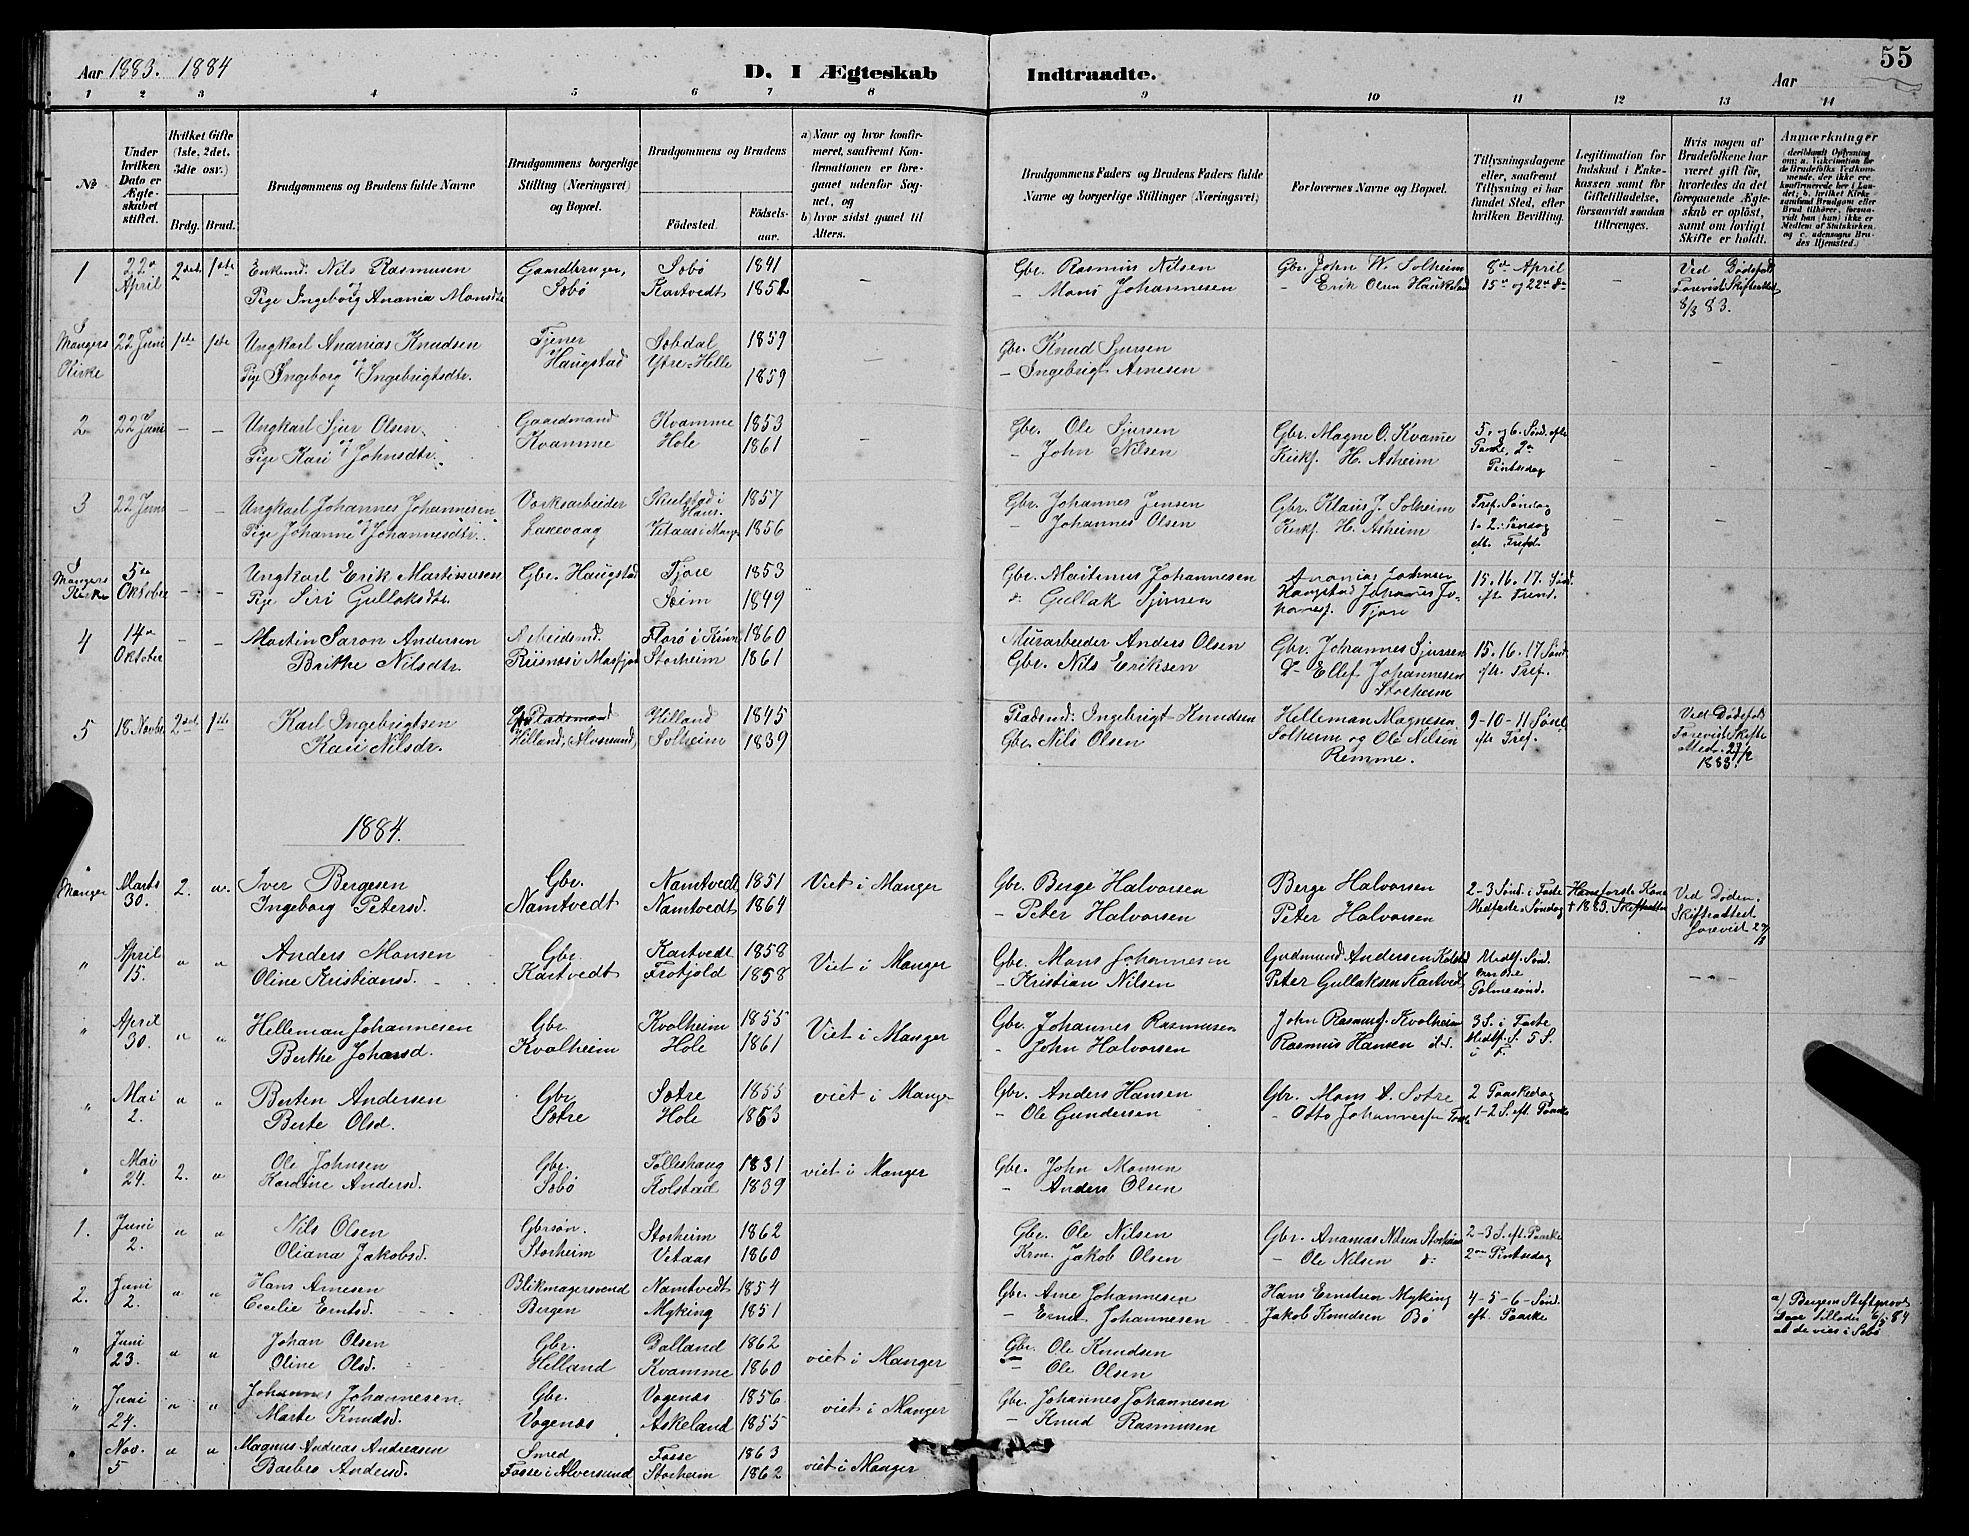 Aar 1883. 1884
D. I Ægteskab Indtraadte.
Aar
55
1 2 3 4 5 6 7 8 9 10 11 12 13 14
№
Under hvilken Dato er Ægteskabet stiftet.
Hvilket Gifte (1ste, 2det, 3die osv.)
Brdg. Brud.
Brudgommens og Brudens fulde Navne
Brudgommens borgerlige Stilling (Næringsvei) og Bopæl.
Brudgommens og Brudens
Fødested. Fødselsaar.
a) Naar og hvor konfirmeret, saafremt Konfirmationen er foregaaet udenfor Sognet, og
b) hvor sidst gaaet til Alters.
Brudgommens Faders og Brudens Faders fulde Navne og borgerlige Stillinger (Næringsvei)
Forlovernes Navne og Bopæl.
Tillysningsdagene eller, saafremt Tillysning ei har fundet Sted, efter hvilken Bevilling.
Legitimation for Indskud i Enkekassen samt for Giftetilladelse, forsaavidt saadan tiltrænges.
Hvis nogen af Brudefolkene har været gift før, hvorledes da det foregaaende Ægteskab er opløst, samt om lovligt Skifte er holdt.
Anmærkninger
1 22de April 2det 1ste Enkemd: Nils Rasmusen Gaardbruger, Søbø 1841 Gbr. Rasmus Nilsen Gbr. John W. Solheim 8de April Ved Dødsfald
og Pige Ingeborg Anania Monsdtr Søbø Kartvedt 1852 - Mons Johannesen - Erik Olsen Haukeland 15de og 22de ds Forevist Skifteattest
8/3 83.
I Mangers Kirke 22 Juni 1ste 1ste Ungkarl Ananias Knudsen Tjener Søbdal 1859 Gbr. Knud Sjursen
Pige Ingeborg Ingebrigtsdtr. Haugstad Ytre-Hille 1859 - Ingebrigt Arnesen
2 22 Juni - - Ungkarl Sjur Olsen Gaardmand Kvamme 1853 Gbr. Ole Sjursen Gbr. Magne O. Kvame 5. og 6. Sønd. efter
Pige Kari Johnsdtr. Kvamme Hole 1861 - John Nilsen Kirkf. H. Asheim Paaske, 2den Pintsedag
3 22 Juni - - Ungkarl Johannes Johannesen Skulstad i Haus 1857 Gbr. Johannes Jensen Gbr. Klaus J. Solheim Tref. Søndag
Pige Johanne Johannesdtr. Laxevaag Vitaas i Manger 1856 - Johannes Olsen Kirkf. H. Asheim 1-2. Søndag eft. Trefd.
I Mangers Kirke 5te Oktober - - Ungkarl Erik Martinusen Gbr. Haugstad Fjore 1853 Gbr. Martinus Johannesen 15. 16. 17. Sønd.
Pige Siri Gullaksdtr. Seim 1849 Gullak Sjursen Haugstad Johannes Fjore
4 14de Oktober - - Martin Saron Andersen Arbeidsmd. Florø i Kinn 1860 Murarbeider Anders Olsen Gbr. Johannes Sjursen 15. 16. 17 Sønd.
Brithe Nilsdtr. Riisnæs i Masfjord Storheim 1861 Gbr. Nils Eriksen Do Ellef Johannesen Storheim eftr. Tref.
5 18 Novbr. 2det 1ste Karl Ingebrigtsen Pladsmand Hilland 1845 Pladsmd: Ingebrigt Knudsen Helleman Magnesen 9-10-11 Sønd. Ved Dødsfald
Kari Nilsdr. Hilland, Alversund Solheim 1839 Gbr. Nils Olsen Solheim og Ole Nilsen Remme. eftr Tref. Forevist Skifte
1883.
1884.
" Manger Marts 30. 2. " Iver Bergesen Gbr. Namtvedt 1851 Viet i Manger Gbr. Berge Halvorsen Berge Halvorsen 2-3 Sønd. i Faste Hans første Kone Ved Døden.
Ingeborg Petersd. Namtvedt Namtvedt 1864 - Peter Halvorsen Peter Halvorsen Midfaste-Søndag † 1883. Skifteattest Skifteattest forevist
" April 15. " " Anders Monsen Gbr. Kartvedt 1858 Viet i Manger Gbr. Mons Johannesen Gudmund Andersen Kolstad Midtf. Sønd.
Oline Kristiansd. Kartvedt Frotjold 1858 - Kristian Nilsen Peter Gullaksen Kartvedt Palmesønd.
" April 30. " " Helleman Johannesen Gbr. Kvolheim 1855 Viet i Manger Gbr. Johannes Rasmusen John Rasmusf. Kvolheim 3 S. i Faste
Berthe Johansd. Kvolheim Hole 1861 - John Halvorsen Rasmus Hansen Midtf. S. 5 S. i F.
" Mai 2. " " Berten Andersen Gbr. Sætre 1855 viet i Manger Gbr. Anders Hansen Gbr. Mons A. Sætre 2 Paaskedag
Berte Olsd. Sætre Hole 1853 - Ole Gundersen - Otto Johannesen 1-2 S. eft. Paaske
" Mai 24. 2. " Ole Johnsen Gbr. Tolleshaug 1831 viet i Manger Gbr. John Monsen
Kardine Andersd. Søbø Kolstad 1839 - Anders Olsen
1. Juni 2. " " Nils Olsen Gbrsøn. Storheim 1862 Gbr. Ole Nilsen Gbr. Ananias Nilsen Storheim 2-3 S. eft. Paaske
Oliana Jakobsd. Storheim Vitaas 1860 Jakob Olsen - Ole Nilsen d: 2den Pintsedag
2. Juni 2. " " Hans Arnesen Blikmagersvend Namtvedt 1854 Gbr. Arne Johannesen Hans Erndsen Myking 4-5-6-Sønd. a/ Bergens Stiftsprovst
Cecilie Erntsd. Bergen Myking 1851 - Ernd Johannesen Jakob Knudsen Bø eft. Paaske 6/5 84 at de vies i Søbø
" Juni 23. " " Johan Olsen Gbr. Dalland 1862 viet i Manger Gbr. Ole Knudsen
Oline Olsd. Hilland Kvamme 1860 - Ole Olsen
" Juni 24. " " Johannes Johannesen Gbr. Vogenæs 1856 viet i Manger Gbr. Johannes Johannesen
Marte Knudsd. Vogenæs Askeland 1855 - Knud Rasmusen
" Nov. 5 " " Magnus Andreas Andreasen Smed Fosse 1863 viet i Manger
Barbro Andersd. Fosse i Alversund Storheim 1862